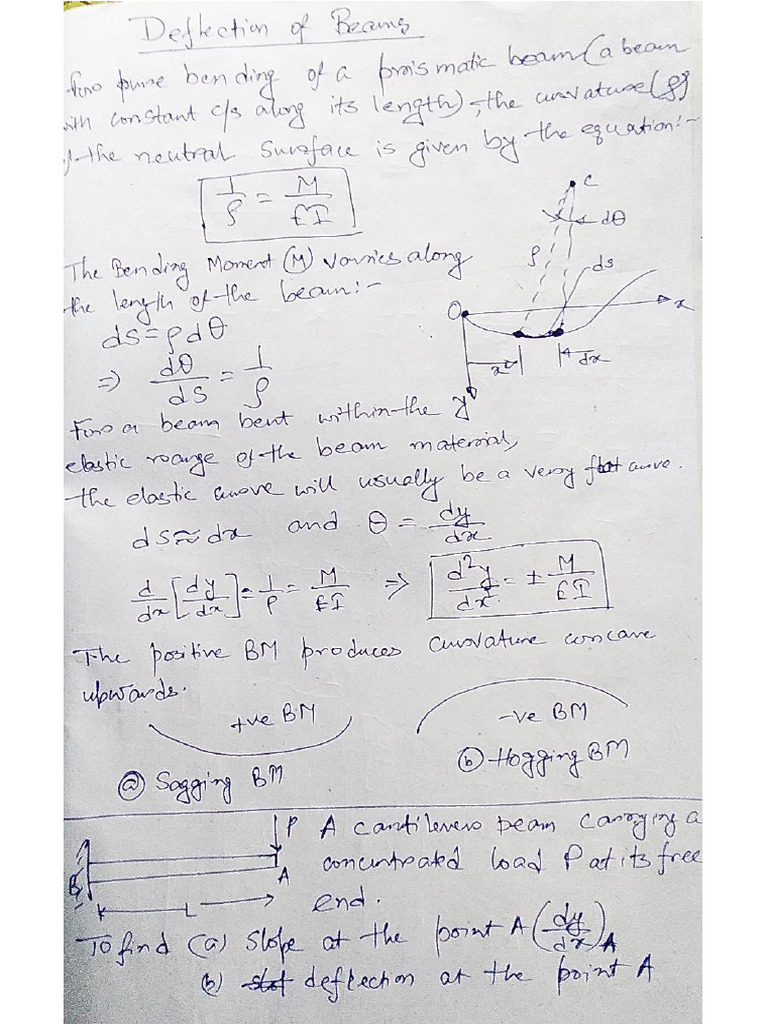 Deflection of Beams
For pure bending of a prismatic beam (a beam
with constant c/s along its length), the curvature (ρ)
of the neutral surface is given by the equation:-
1/ρ = M/EI
C
dθ
ρ
ds
O
x
x
dx
y
The Bending Moment (M) varies along
the length of the beam:-
ds = ρdθ
⇒ dθ/ds = 1/ρ
For a beam bent within the
elastic range of the beam material,
the elastic curve will usually be a very flat curve.
ds ≈ dx and θ = dy/dx
d/dx [dy/dx] = 1/ρ = M/EI ⇒ d²y/dx² = ± M/EI
The positive BM produces curvature concave
upwards.
+ve BM
-ve BM
(a) Sagging BM
(b) Hogging BM
P
A
B
L
A cantilever beam carrying a
concentrated load P at its free
end.
To find (a) Slope at the point A (dy/dx)A
(b) deflection at the point A